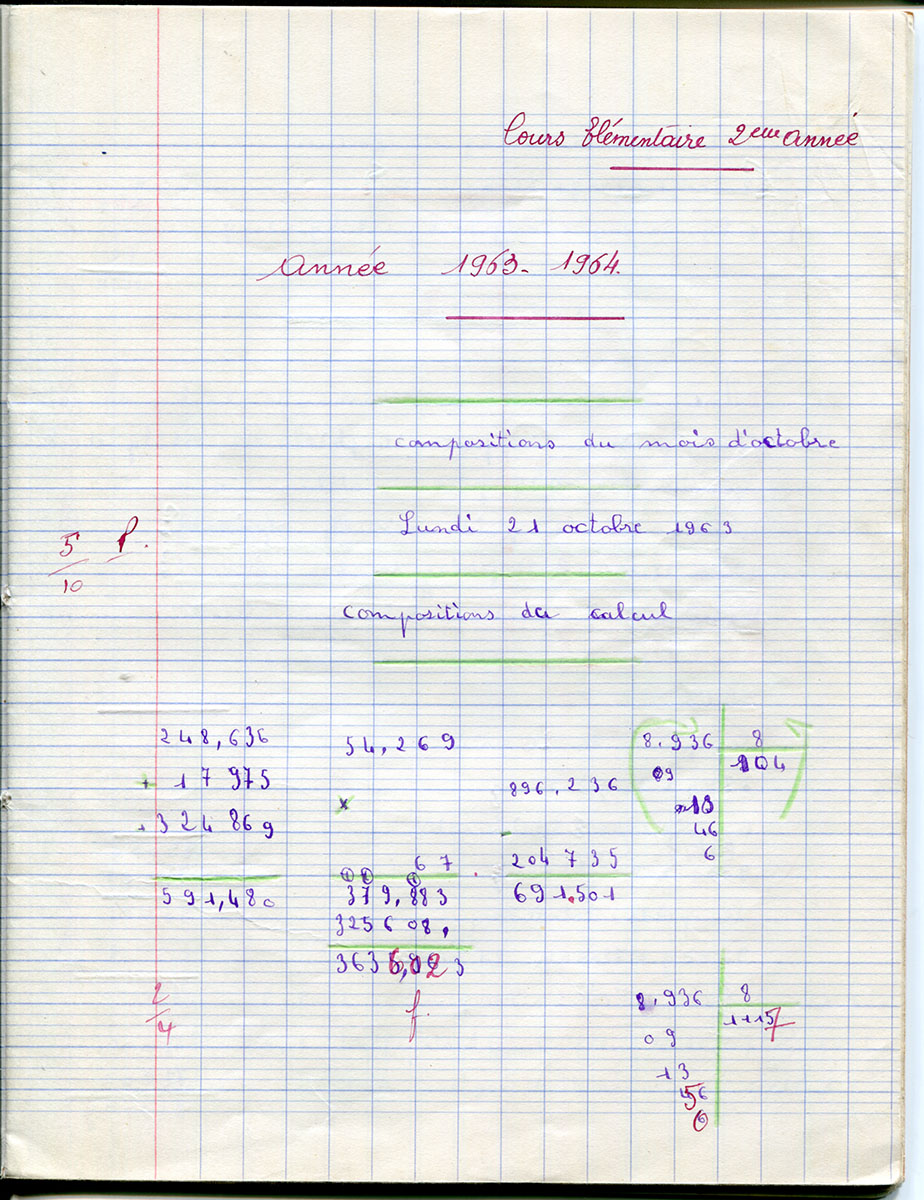 Cours Elémentaire 2ème année
Année 1963-1964.
compositions du mois d'octobre
Lundi 21 octobre 1963
5/10 P.
compositions de calcul
248,636
+ 17 975
+ 324 869
591,480
54,269
x
67
379,883
325608.
3636,023
f
896.236
-
204 735
691.501
8.936 8
09 1104
13
46
6
2/4
8.936 8
09 1117
13
56
0